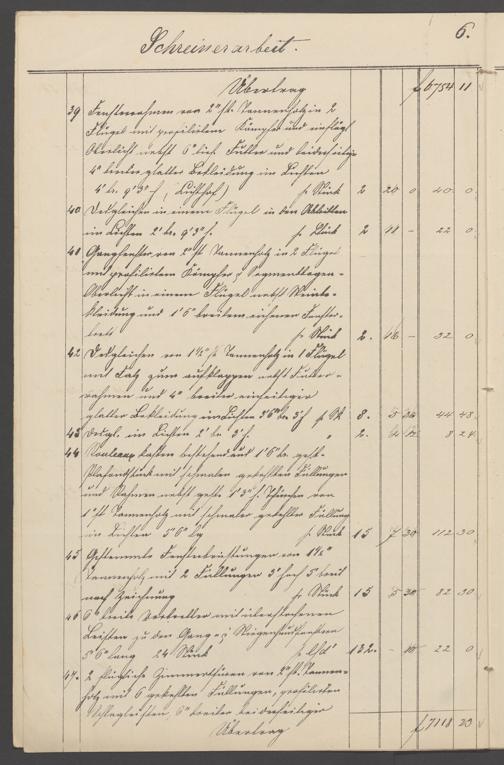 6.
Schreinerarbeit.
Übertrag f 6754 11
39 Fensterrahmen von 2" st. Tannenholz in 2
Flügel mit profilirtem Kämpfer und
Oberlicht nebst 6" Futter und beiderseitige
4" breite glatter Bekleidung im Lichten
4' br. 9'9" h. (Lichthof) p Stück 2 20 0 40. 0
40 Desgleichen in einem Flügel in den Abtritten
im Lichten 2' br. 9'3" h. p Stück 2 11 – 22 0
41 Gangfenster von 2" st Tannenholz in 2 Flügel
mit profilirtem Kämpfer, Segmentbogen-
Oberlicht in einem Flügel nebst
kleidung und 1'5" breitem eichenen Fenster-
brett p Stück 2. 16 – 32 0
42 Desgleichen von 1½" st Tannenholz in 1 Flügel
mit Falz zum aufklappen nebst Futter-
rahmen und 4" breiter einseitiger
glatter Bekleidung im Lichten p St 8. 5 36 44 48
43 desgl. im Lichten 2' br. 3' h. " 2. 4 12 8 24
44 Rouleaux kasten bestehend aus 1'6" br. gest.
Plafondstück mit schmalen gekehlten Füllungen
und Rahmen nebst von
1" st Tannenholz mit schmaler gekehlter Füllung
im Lichten 5'6" lg p Stück 15 7 30 112 30
45 Gestemmte Fensterbrüstungen von 1¼"
Tannenholz mit 2 Füllungen 3' hoch 5' breit
nach Zeichnung p Stück 15 5 30 82 30
46 6" breite mit
Leisten zu den Gang- &
5'6" lang 24 Stück p lfd' 132. – 10 22 0
47. 2 flüglige Zimmerthüren von 2" st. Tannen-
holz mit 6 gekehlten Füllungen, profilirten
Schlagleisten, 6" breiter beiderseitiger
Übertrag f 7118 23